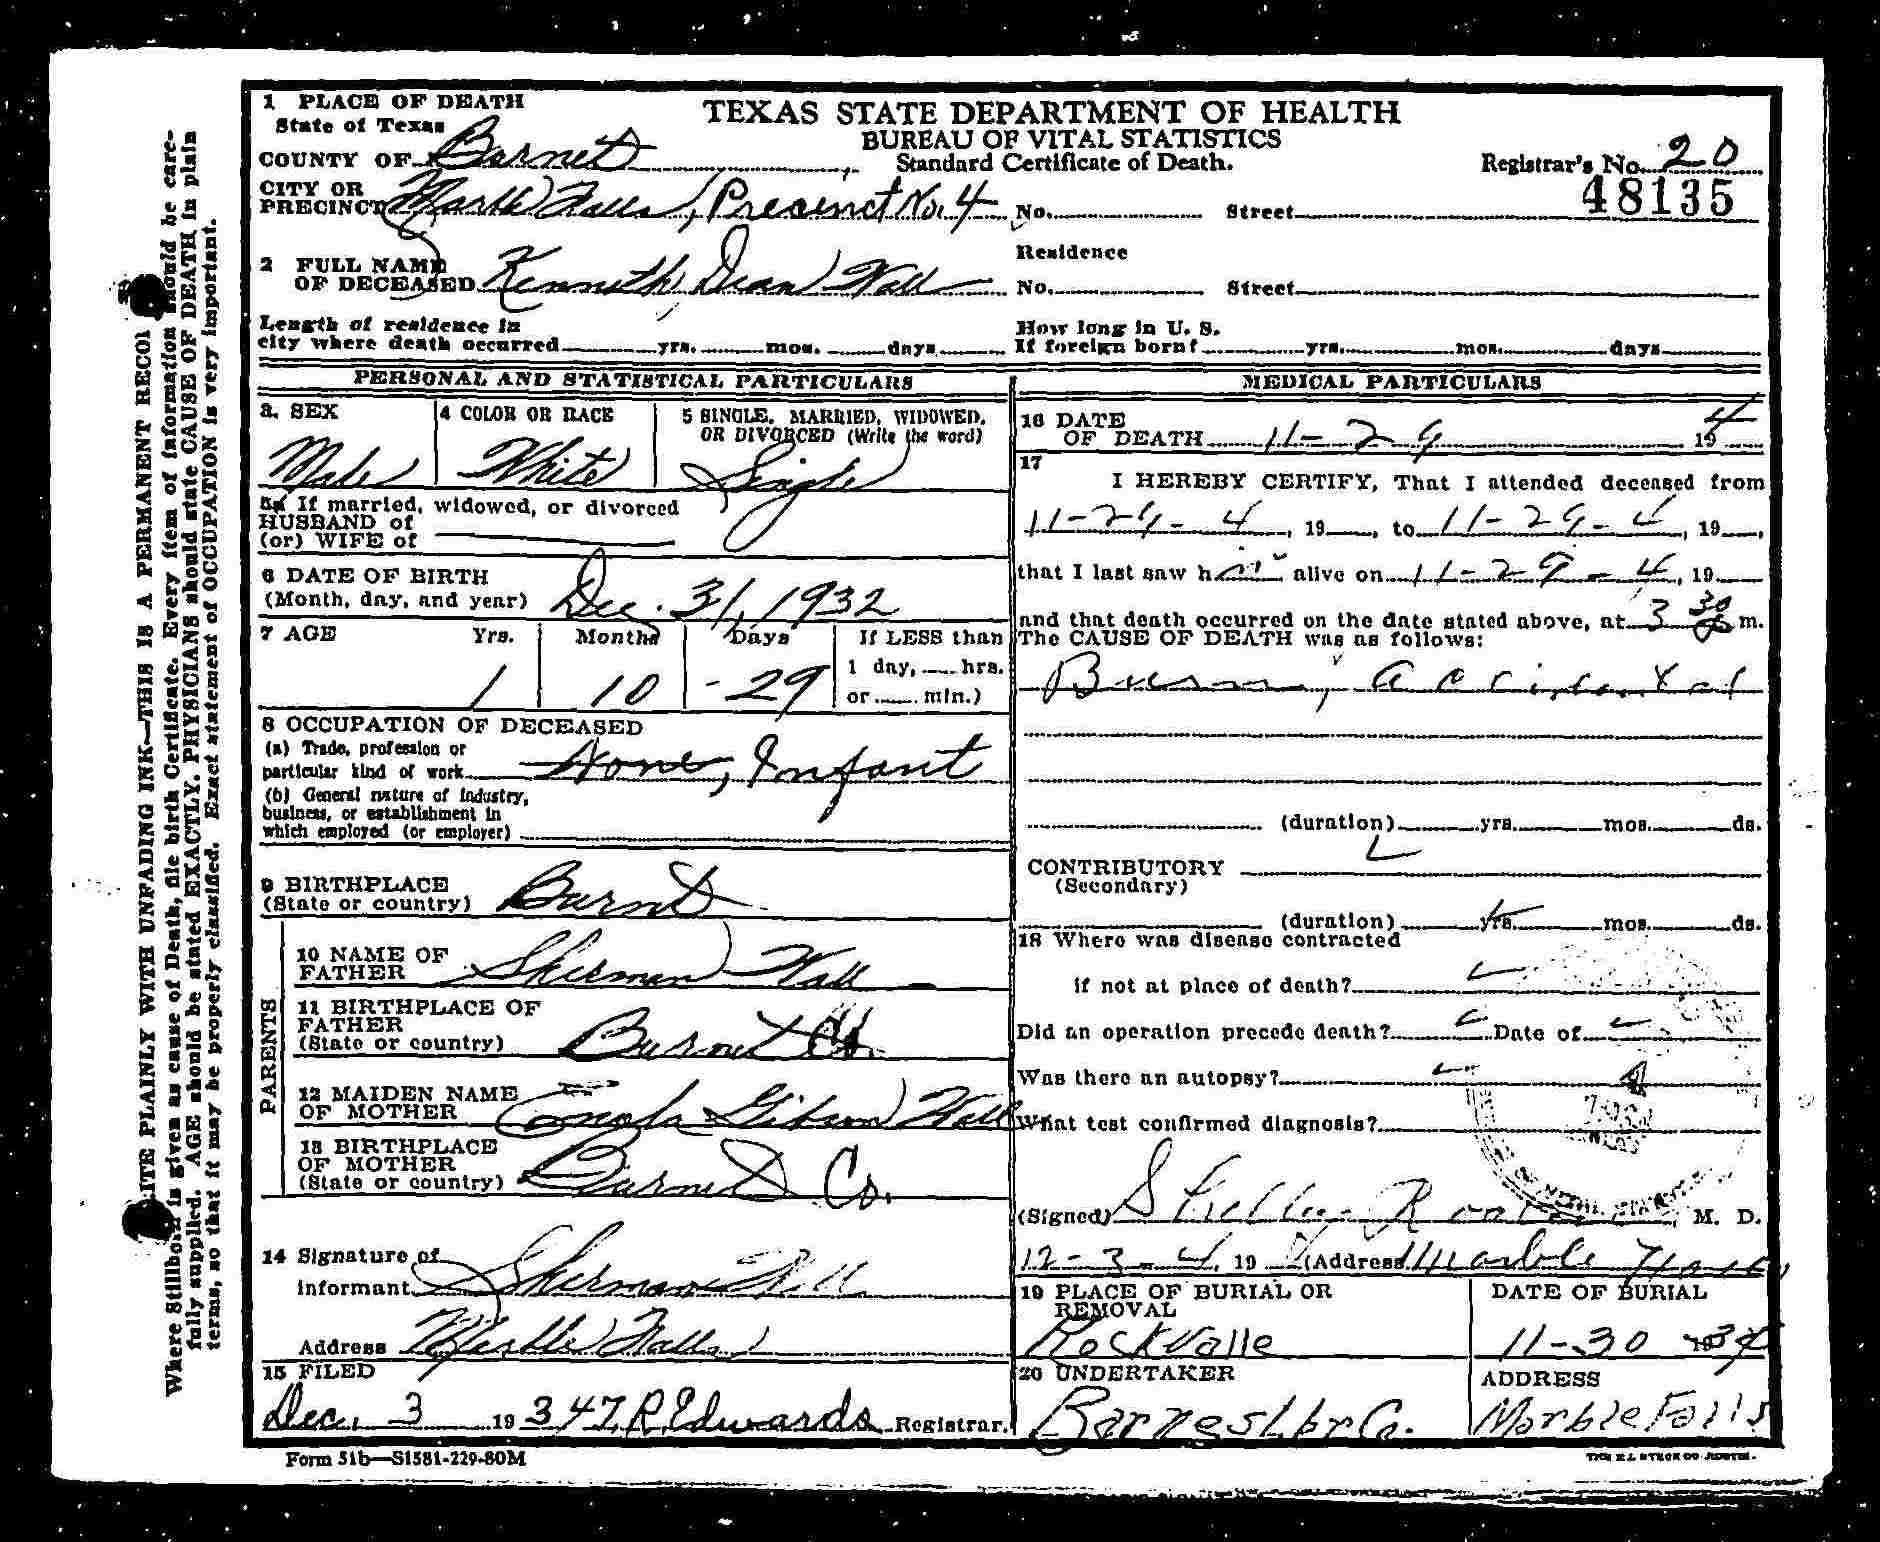 1 PLACE OF DEATH
State of Texas
COUNTY OF Burnet
CITY OR PRECINCT Marble Falls, Precinct No. 4
TEXAS STATE DEPARTMENT OF HEALTH
BUREAU OF VITAL STATISTICS
Standard Certificate of Death.
Registrar's No. 20
48135
No. Street
2 FULL NAME OF DECEASED Kenneth Dean Wall
Residence
No. Street
Length of residence in
city where death occurred yrs. mos. days
How long in U. S.
If foreign born? yrs. mos. days
PERSONAL AND STATISTICAL PARTICULARS
3. SEX
Male
4 COLOR OR RACE
White
5 SINGLE, MARRIED, WIDOWED,
OR DIVORCED (Write the word)
Single
5a If married, widowed, or divorced
HUSBAND of
(or) WIFE of
6 DATE OF BIRTH
(Month, day, and year) Dec. 31, 1932
7 AGE Yrs. Months Days If LESS than
1 day, hrs.
or min.)
1 10 - 29
8 OCCUPATION OF DECEASED
(a) Trade, profession or
particular kind of work None, Infant
(b) General nature of industry,
business, or establishment in
which employed (or employer)
9 BIRTHPLACE
(State or country) Burnet
PARENTS
10 NAME OF
FATHER Sherman Wall
11 BIRTHPLACE OF
FATHER
(State or country) Burnet Co.
12 MAIDEN NAME
OF MOTHER Enola Gibson Wall
13 BIRTHPLACE
OF MOTHER
(State or country) Burnet Co.
14 Signature of
informant Sherman Wall
Address Marble Falls
15 FILED
Dec. 3 1934 T. R. Edwards Registrar.
MEDICAL PARTICULARS
16 DATE
OF DEATH 11-29 194
17
I HEREBY CERTIFY, That I attended deceased from
11-29-4, 19 , to 11-29-4, 19 ,
that I last saw h im alive on 11-29-4, 19
and that death occurred on the date stated above, at 3 30 m.
The CAUSE OF DEATH was as follows:
Burn, accidental
(duration) yrs. mos. ds.
CONTRIBUTORY
(Secondary)
(duration) yrs. mos. ds.
18 Where was disease contracted
if not at place of death?
Did an operation precede death? Date of
Was there an autopsy?
What test confirmed diagnosis?
(Signed) M. D.
12-3-4, 19 (Address) Marble Falls
19 PLACE OF BURIAL OR
REMOVAL
Rockvalle
DATE OF BURIAL
11-30 1934
20 UNDERTAKER
Barnes Lbr Co.
ADDRESS
Marble Falls
Form 51b—S1581-229-80M
THE E.L. STECK CO. AUSTIN.
WRITE PLAINLY WITH UNFADING INK—THIS IS A PERMANENT RECORD
Where Stillborn is given as cause of Death, file birth Certificate. Every item of information should be care-
fully supplied. AGE should be stated EXACTLY. PHYSICIANS should state CAUSE OF DEATH in plain
terms, so that it may be properly classified. Exact statement of OCCUPATION is very important.